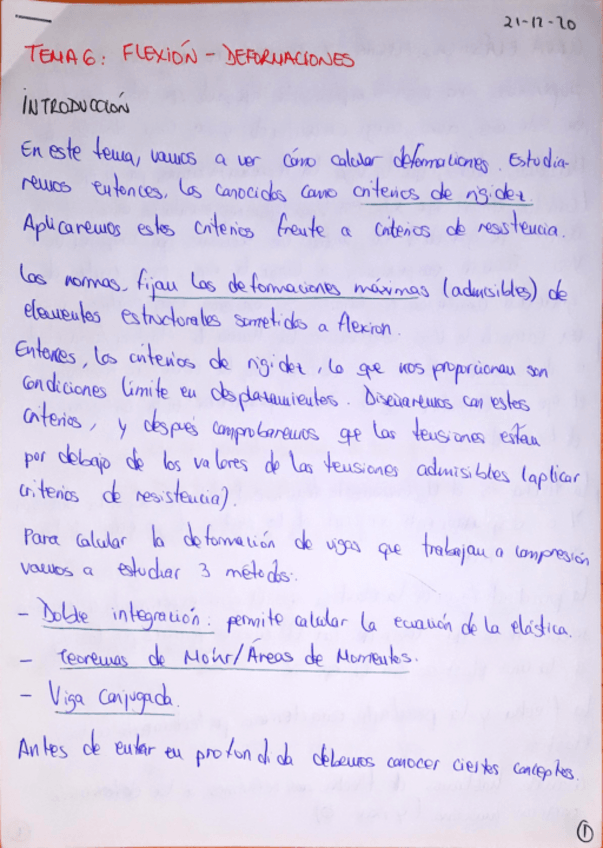 21-12-20
TEMA 6: FLEXIÓN - DEFORMACIONES
INTRODUCCIÓN
En este tema, vamos a ver cómo calcular deformaciones. Estudia-
remos entonces, los conocidos como criterios de rigidez.
Aplicaremos estos criterios frente a criterios de resistencia.
Las normas, fijan las deformaciones máximas (admisibles) de
elementos estructurales sometidos a flexion.
Entonces, los criterios de rigidez, lo que nos proporcionan son
condiciones límite en desplazamientos. Diseñaremos con estos
criterios, y después comprobaremos qe las tensiones estan
por debajo de los valores de las tensiones admisibles (aplicar
criterios de resistencia).
Para calcular la deformación de vigas que trabajan a compresión
vamos a estudiar 3 métodos:
- Doble integración: permite calcular la ecuación de la elástica.
- Teoremas de Mohr/Áreas de Momentos.
- Viga Conjugada.
Antes de entrar en profundida debemos conocer ciertos conceptos.
1